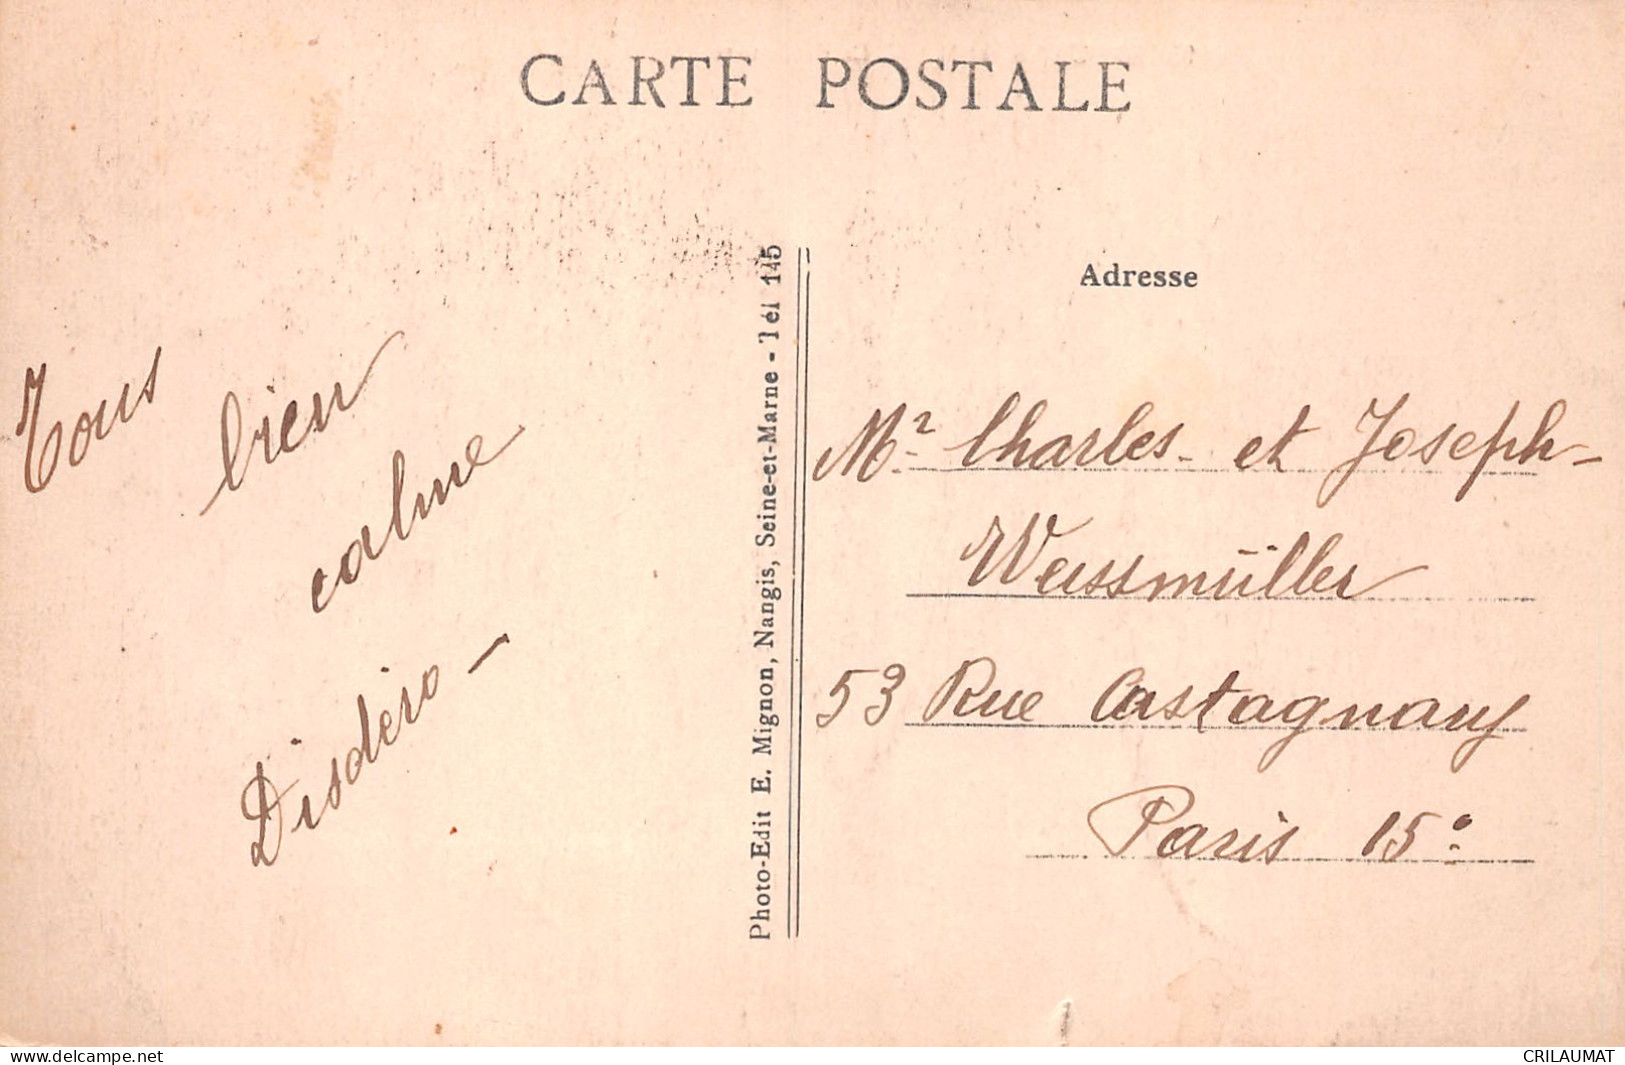 CARTE POSTALE
Tous
bien
calme
Disdéro -
Photo-Edit E. Mignon, Nangis, Seine-et-Marne - Tél 145
Adresse
Mr. Charles et Joseph
Weissmüller
53 Rue Castagnary
Paris 15e
delcampe.net
CRILAUMAT